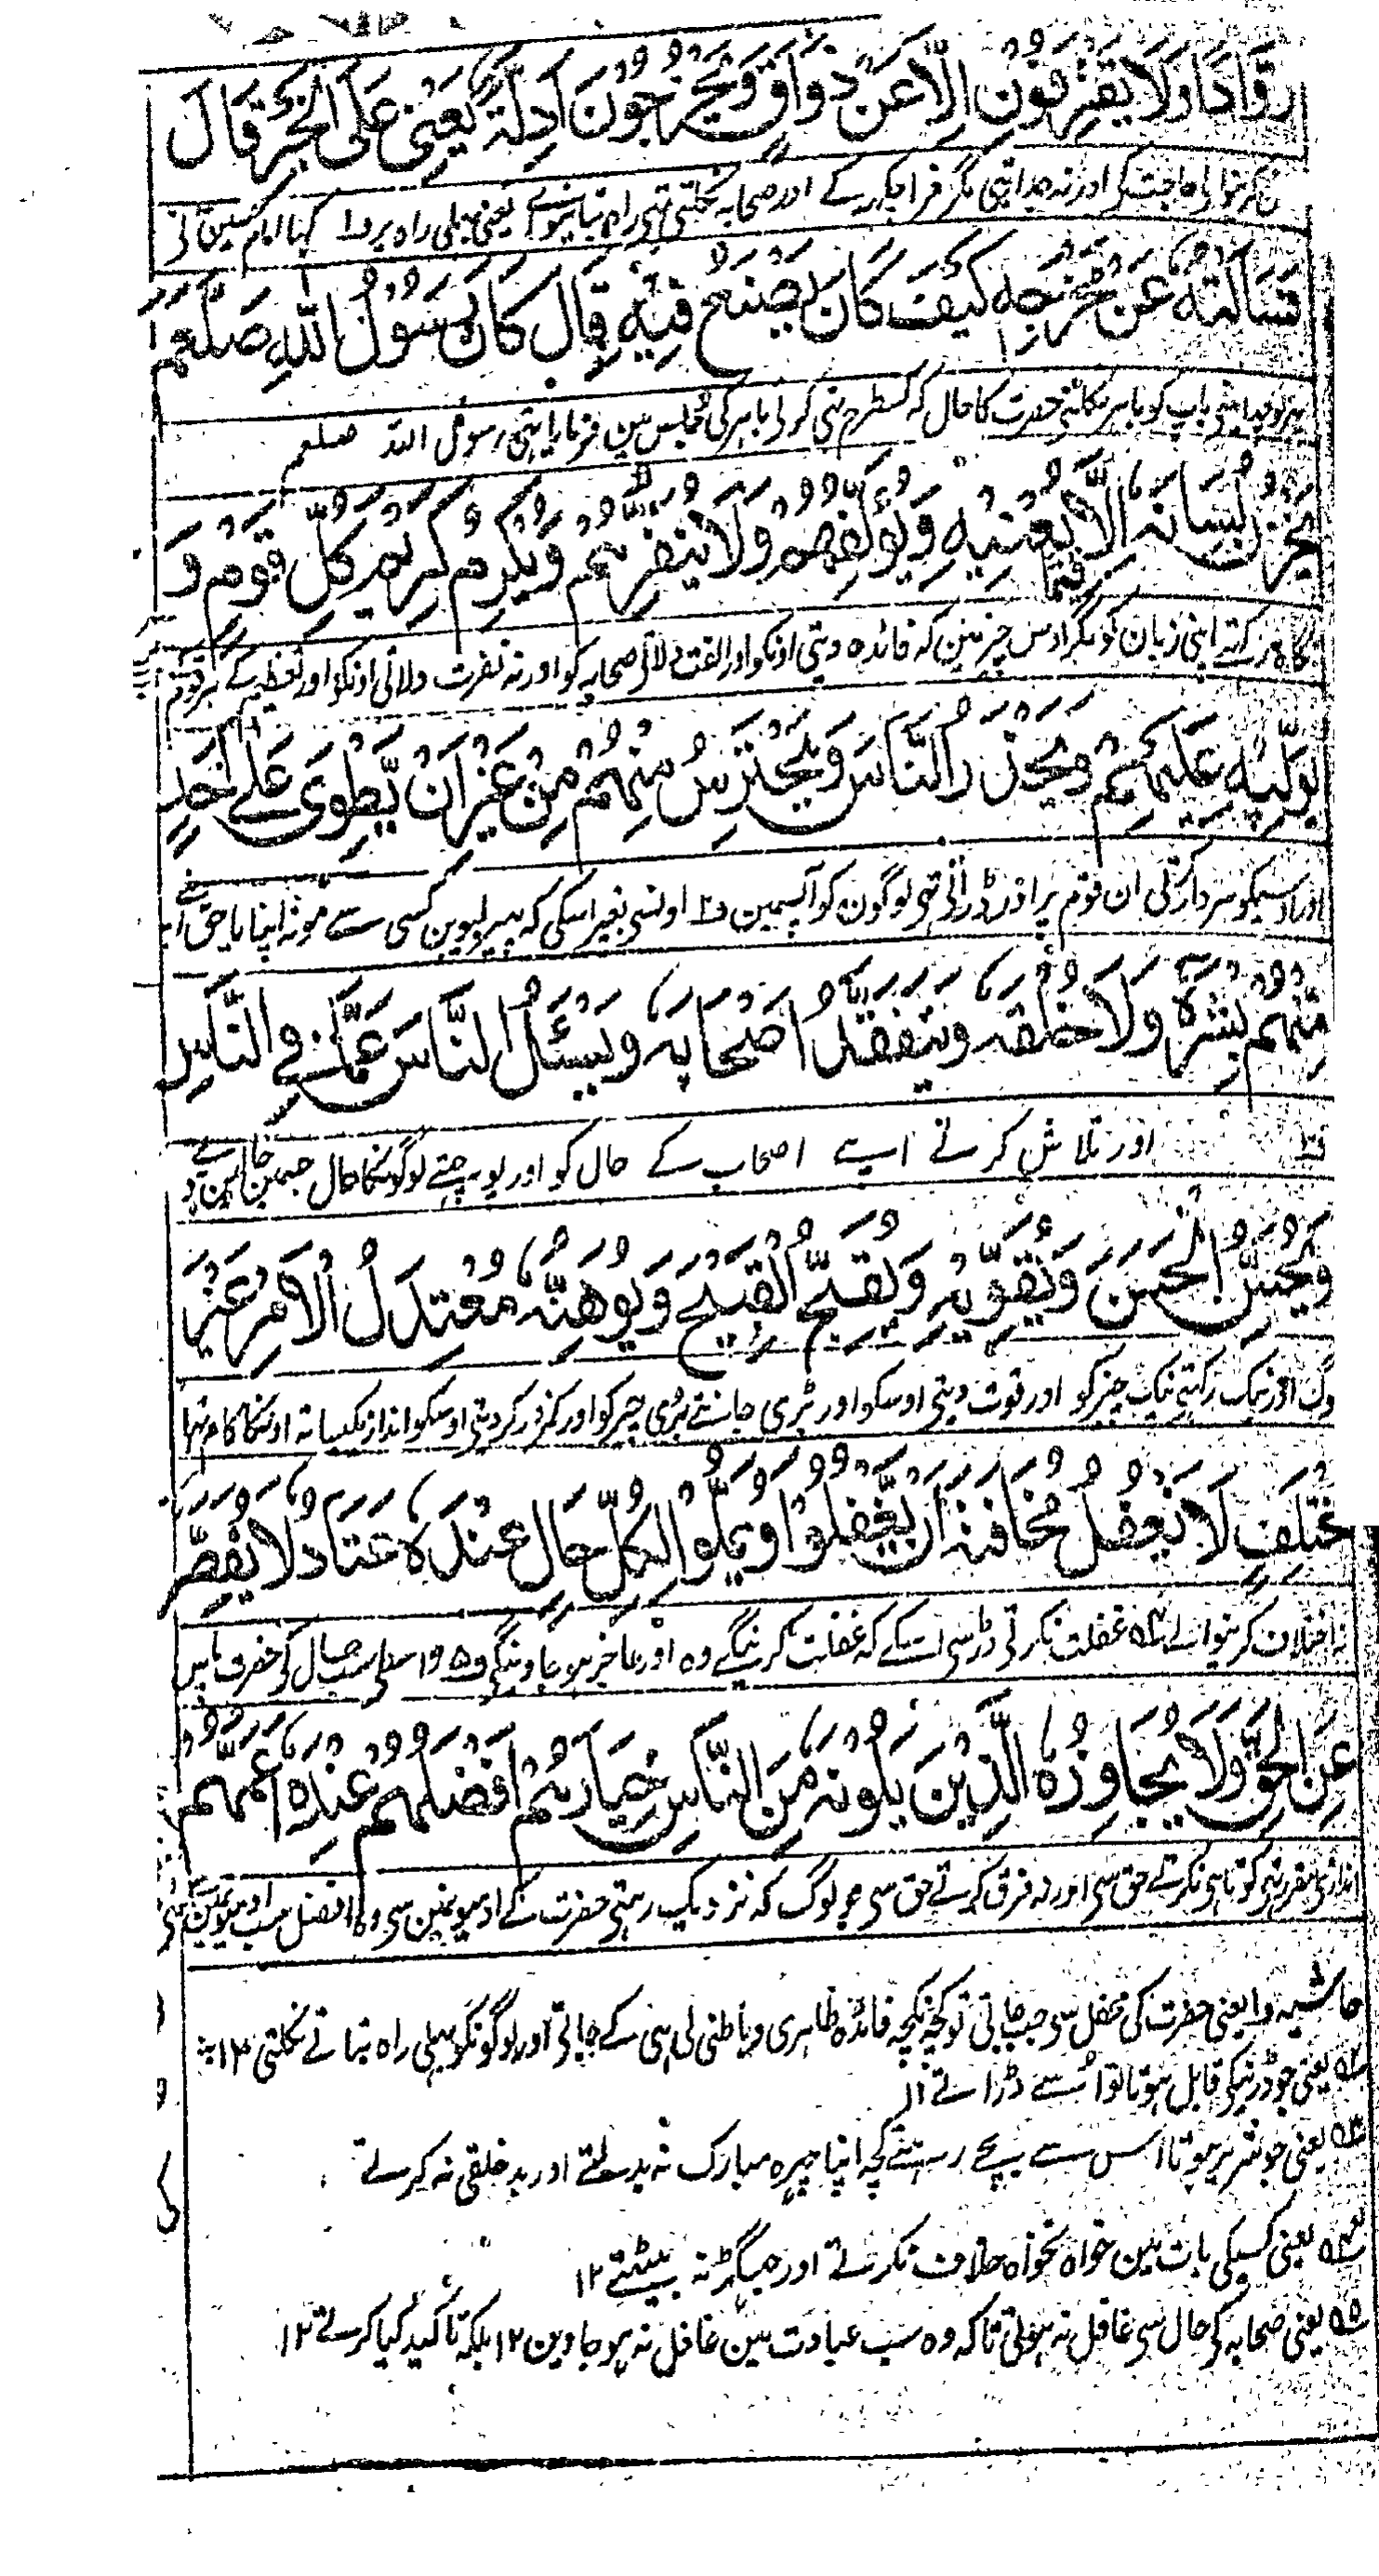 رُوَّادًا وَلَا يَفْتَرِقُونَ اِلَّا عَنْ ذَوَاقٍ وَيَخْرُجُونَ اَدِلَّةً يَعْنِي عَلَى الْخَيْرِ قَالَ
حاجت کی اور نہ جدا ہتی مگر مزا چکہہ کے اور صحابہ نکلتی تہی راہ بتانیوالے یعنی بہلی راہ پر ف۱ کہا امام حسین نی
فَسَاَلْتُهُ عَنْ مَخْرَجِهِ كَيْفَ كَانَ يَصْنَعُ فِيْهِ قَالَ كَانَ رَسُوْلُ اللهِ صَلْعَم
پہر پوچہا مینی باپ کو باہر نکلتی حضرت کا حال کہ کسطرح تہی کرتی باہر کی مجلس مین فرمایا تہی رسول اللہ صلعم
يَخْزُنُ لِسَانَهُ اِلَّا فِيْمَا يَعْنِيْهِ وَيُؤَلِّفُهُمْ وَلَا يُنَفِّرُهُمْ وَيُكْرِمُ كَرِيْمَ كُلِّ قَوْمٍ وَ
نگاہ رکہتے اپنی زبان کو مگر اوس چیز مین کہ فائدہ دیتی اونکو اور الفت دلاتی صحابہ کو اور نہ نفرت دلاتی اونکو اور تعظیم کرتے ہر قوم
يُوَلِّيْهِ عَلَيْهِمْ وَيُحَذِّرُ النَّاسَ وَيَحْتَرِسُ مِنْهُمْ مِنْ غَيْرِ اَنْ يَّطْوِيَ عَلٰى اَحَدٍ
اور اوسیکو سردار کرتی ان قوم پر اور ڈراتی تہی لوگون کو آپسمین ف۲ اونسی بغیر اسکی کہ پہیر لیوین کسی سے مونہ اپنا یا خلق اپنا
مِنْهُمْ بِشْرَهُ وَلَا خُلُقَهُ وَيَتَفَقَّدُ اَصْحَابَهُ وَيَسْئَلُ النَّاسَ عَمَّا فِي النَّاسِ
ف۳ اور تلاش کرتے اپنے اصحاب کے حال کو اور پوچہتے لوگونکا حال
وَيُحَسِّنُ الْحَسَنَ وَيُقَوِّيْهِ وَيُقَبِّحُ الْقَبِيْحَ وَيُوَهِّنُهُ مُعْتَدِلُ الْاَمْرِ غَيْرُ
لوگ اور نیک رکہتے نیک چیز کو اور قوت دیتی اوسکو اور بری جانتے بری چیز کو اور کمزور کر دیتی اوسکو انداز یکسان تہ اونکا کام تہا
مُخْتَلِفٍ لَا يَغْفُلُ مَخَافَةَ اَنْ يَّغْفُلُوْا وَيَمَلُّوْا لِكُلِّ حَالٍ عِنْدَهُ عَتَادٌ لَا يُقَصِّرُ
نہ اختلاف کرنیوالے ف۴ غفلت نکرتی ڈر سی اسکے کہ غفلت کرینگے وہ اور عاجز ہو جاوینگی ف۵ واسطی سب حال کی حضرت پاس
عَنِ الْحَقِّ وَلَا يُجَاوِزُهُ الَّذِيْنَ يَلُوْنَهُ مِنَ النَّاسِ خِيَارُهُمْ اَفْضَلُهُمْ عِنْدَهُ اَعَمُّهُمْ
اندازی مقرر تہی کوتاہی نکرتے حق سی اور نہ فرق کرتے حق سی جو لوگ کہ نزدیک رہتی حضرت کے آدمیونمین سی وہ افضل سب آدمیونمین
حاشیہ ف۱ یعنی حضرت کی محفل سی جب جاتی تو کچہ نکچہ فائدہ ظاہری و باطنی لی ہی کے جاتی اور لوگونکو بہلی راہ بتاتے نکلتی ۱۲
ف۲ یعنی جو ڈرنیکی قابل ہوتا تو اُسے ڈراتے ۱۲
ف۳ یعنی جو شریر ہوتا اس سے بچے رہتے کچہ اپنا چہرہ مبارک نہ بدلتے اور بد خلقی نہ کرتے
ف۴ یعنی کسیکی بات مین خواہ نخواہ خلاف نکرتے اور جہگڑ نہ بیٹہتے ۱۲
ف۵ یعنی صحابہ کی حال سی غافل نہ ہوتی تاکہ وہ سب عبادت مین غافل نہ ہو جاوین ۱۲ بلکہ تاکید کیا کرتے ۱۲